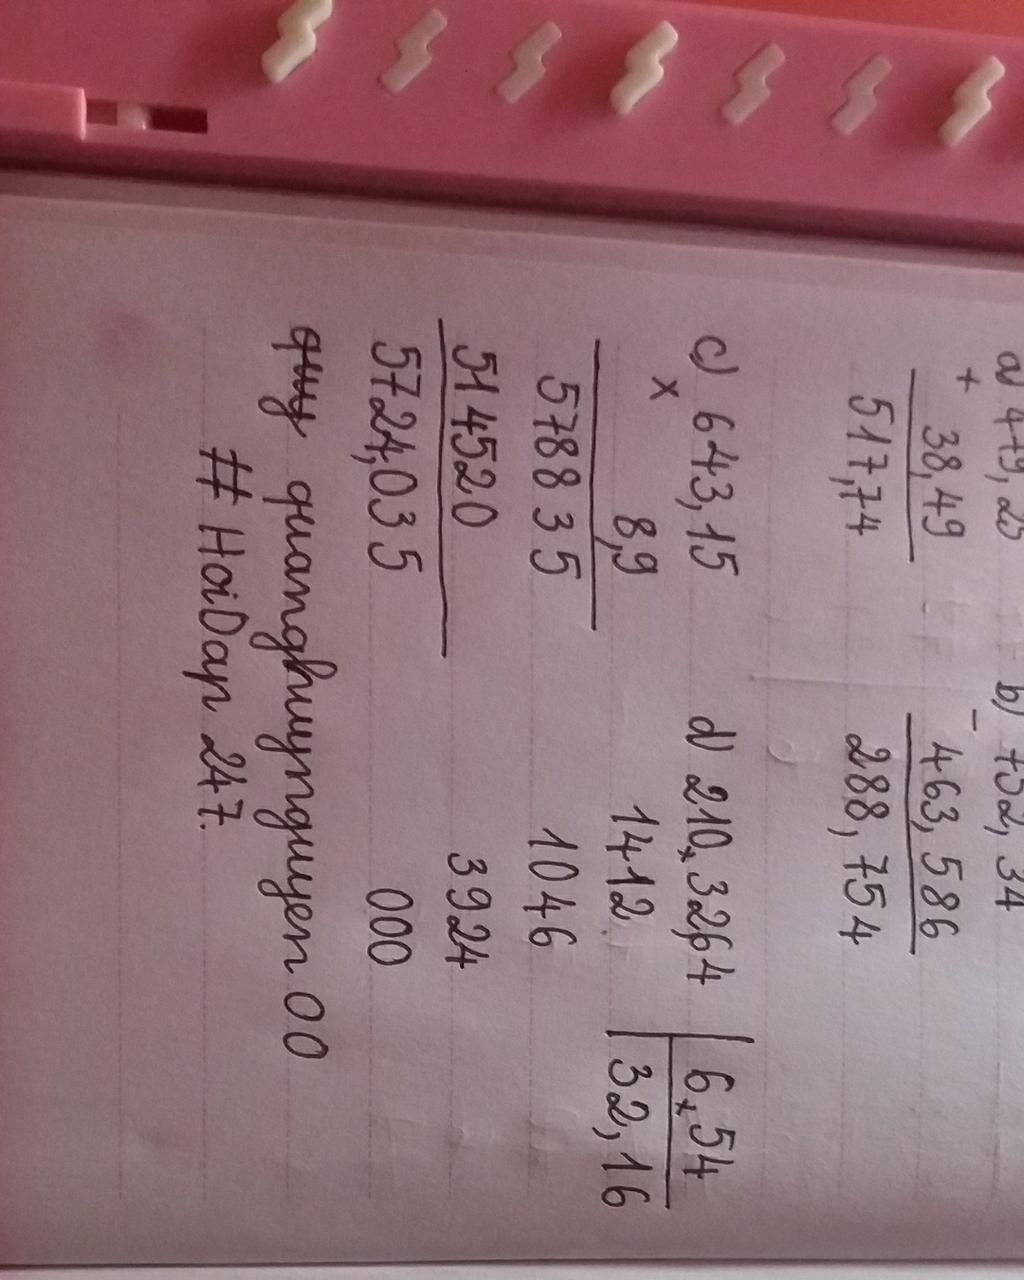 a) 479,25
+ 38,49
517,74
b) 752,34
- 463,586
288,754
c) 643,15
x 8,9
5788 3 5
51 4520
5724,03 5
d) 210,3264 | 6,54
1412 | 32,16
1046
3924
000
quanghuynguyen00
# HoiDap 247.